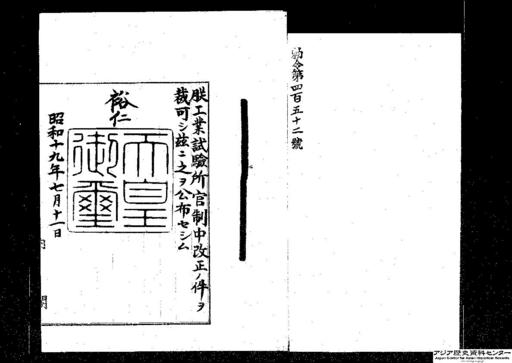 勅令第四百五十二號
朕工業試驗所官制中改正ノ件ヲ
裁可シ茲ニ之ヲ公布セシム
裕仁
天皇
御璽
昭和十九年七月十一日
アジア歴史資料センター
Japan Center for Asian Historical Records